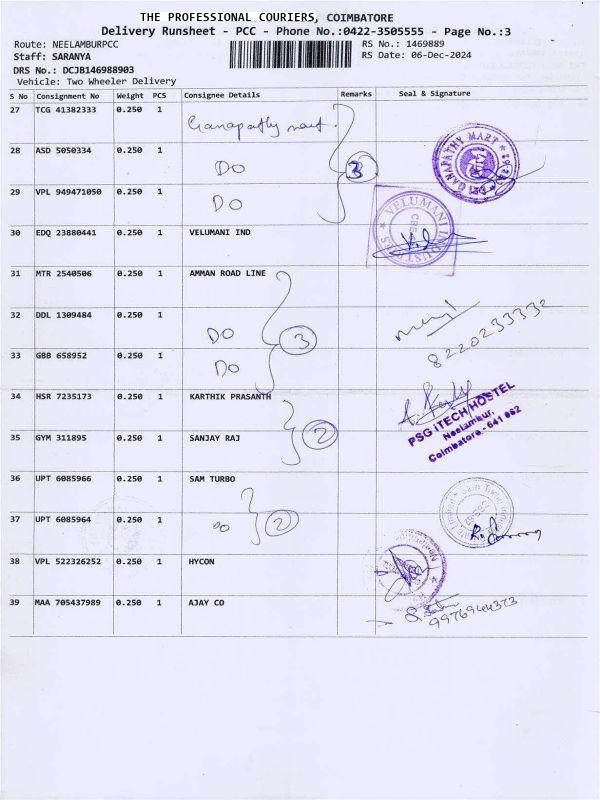 THE PROFESSIONAL COURIERS, COIMBATORE
Delivery Runsheet - PCC - Phone No.:0422-3505555 - Page No.:3
Route: NEELAMBURPCC
RS No.: 1469889
Staff: SARANYA
RS Date: 06-Dec-2024
DRS No.: DCJB146988903
Vehicle: Two Wheeler Delivery
S No Consignment No Weight PCS Consignee Details Remarks Seal & Signature
27 TCG 41382333 0.250 1 Ganapathy mart.
28 ASD 5050334 0.250 1 DO 3
GANAPATHY MART
29 VPL 949471050 0.250 1 DO
30 EDQ 23880441 0.250 1 VELUMANI IND
VELUMANI INDUSTRIES
31 MTR 2540506 0.250 1 AMMAN ROAD LINE
32 DDL 1309484 0.250 1 DO 3
8220233332
33 GBB 658952 0.250 1 DO
34 HSR 7235173 0.250 1 KARTHIK PRASANTH
PSG iTECH HOSTEL
Neelambur,
Coimbatore - 641 062
35 GYM 311895 0.250 1 SANJAY RAJ 2
36 UPT 6085966 0.250 1 SAM TURBO
37 UPT 6085964 0.250 1 DO 2
38 VPL 522326252 0.250 1 HYCON
39 MAA 705437989 0.250 1 AJAY CO
9976944323